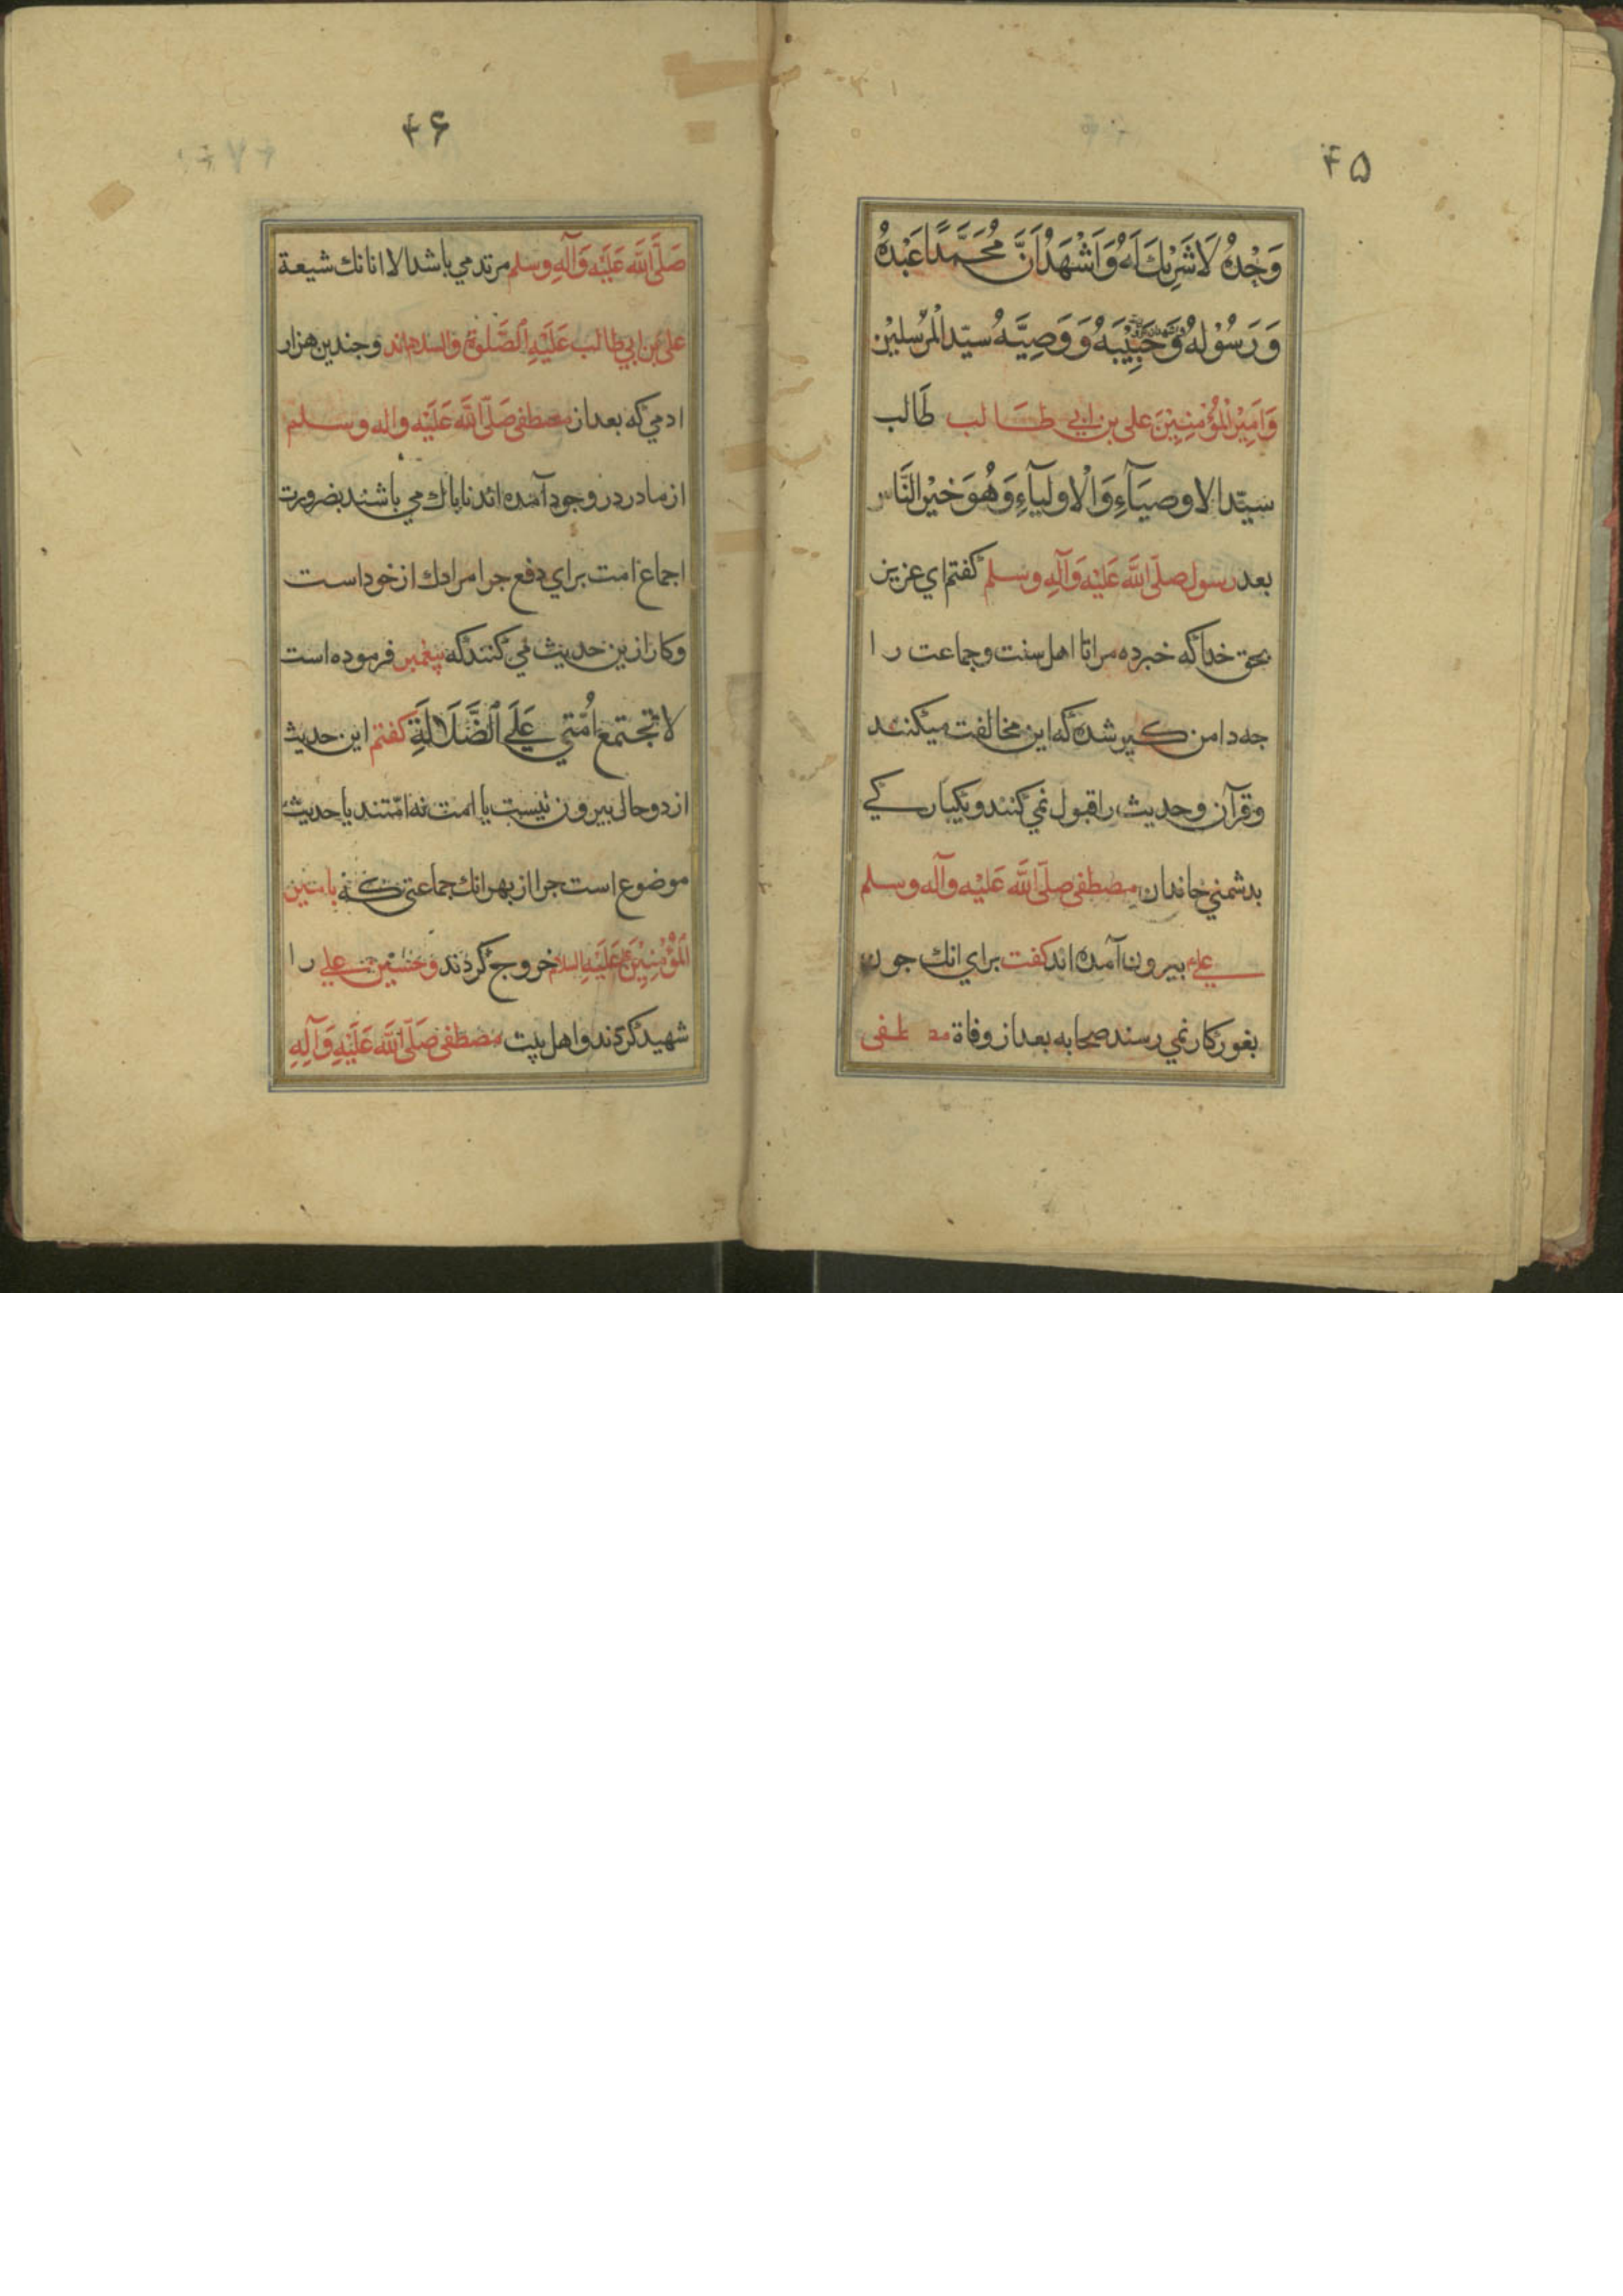 ۴۵
وَحْدَهُ لَا شَرِيْكَ لَهُ وَاَشْهَدُ اَنَّ مُحَمَّدًا عَبْدُهُ
وَرَسُوْلُهُ وَحَبِيْبَهُ وَ وَصِيَّهُ سيّد المرْسلِيْن
وَاَمِيْرُ الْمُؤْمِنِيْنَ على بن ابي طالب طَالب
سيّد الاوصيَآءِ وَالْاوليآءِ وَهُوَ خيْر النَّاس
بعد رسول صلّى اللّه عَليْه وَآلِهِ وسلم كفتم اي عزيز
بحق خدا كه خبر ده مرا تا اهل سنت و جماعت را
جه دامن كير شده كه اين مخالفت ميكنند
و قرآن و حديث را قبول نمي كنند و يكباركي
بدشمني خاندان مصطفى صلّى اللّه عَليْه وآله وسلم
بيرون آمده اند كفت براي انك جون
بغور كار نمي رسند صحابه بعد از وفاة مصطفى
۴۶
صَلَّى اللّه عَلَيْهِ وَآلِهِ وسلم مرتد مي باشد الا انانك شيعة
على بن ابي طالب عَلَيْهِ الصَّلوة والسلام اند و جندين هزار
ادمي كه بعد از مصطفى صَلّى اللّه عَلَيْه واله وسلم
از مادر در وجود آمده اند ناپاك مي باشند بضرورت
اجماع امت براي دفع حرامزادك از خود است
و كار ازين حديث مي كنند كه پيغمبر فرموده است
لا تجتمع اُمّتي عَلَى الضَّلَالَةِ كفتم اين حديث
از دو حالى بيرون نيست يا امت نه امّتند يا حديث
موضوع است جرا از بهر انك جماعتى كه با
الْمُؤْمِنِيْنَ عَلَيْهِ السلام خروج كردند و حسين علي را
شهيد كردند و اهل بيت مصطفى صَلّى اللّه عَلَيْهِ وَآلِهِ